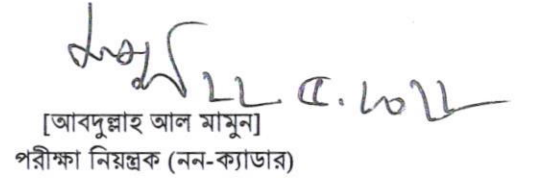 ২২.৫.২০২২
[আবদুল্লাহ আল মামুন]
পরীক্ষা নিয়ন্ত্রক (নন-ক্যাডার)